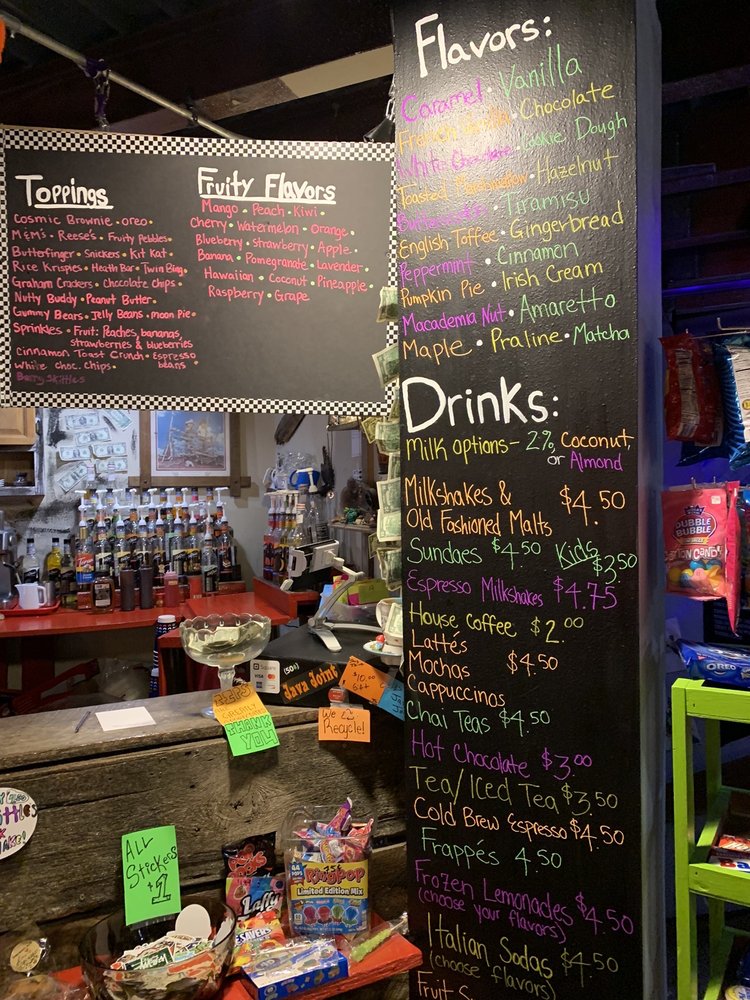 Toppings
Cosmic Brownie • oreo •
M&M's • Reese's • Fruity Pebbles •
Butterfinger • Snickers • Kit Kat •
Rice Krispies • Heath Bar • Twin Bing •
Graham Crackers • Chocolate Chips •
Nutty Buddy • Peanut Butter •
Gummy Bears • Jelly Beans • moon Pie •
Sprinkles • Fruit: Peaches, bananas,
strawberries & blueberries
Cinnamon Toast Crunch • Espresso
beans •
White Choc. Chips •
Berry Skittles
Fruity Flavors
Mango • Peach • Kiwi •
Cherry • Watermelon • Orange •
Blueberry • strawberry • Apple •
Banana • Pomegranate • Lavender •
Hawaiian • Coconut • Pineapple •
Raspberry • Grape
Flavors:
Caramel • Vanilla
French Vanilla • Chocolate
White Chocolate • Cookie Dough
Toasted Marshmallow • Hazelnut
Butterscotch • Tiramisu
English Toffee • Gingerbread
Peppermint • Cinnamon
Pumpkin Pie • Irish Cream
Macadamia Nut • Amaretto
Maple • Praline • Matcha
Drinks:
Milk options - 2%, Coconut,
or Almond
Milkshakes &
Old Fashioned Malts $4.50
Sundaes $4.50 Kids $3.50
Espresso Milkshakes $4.75
House Coffee $2.00
Lattés
Mochas $4.50
Cappuccinos
Chai Teas $4.50
Hot Chocolate $3.00
Tea/Iced Tea $3.50
Cold Brew Espresso $4.50
Frappés 4.50
Frozen Lemonades $4.50
(choose your flavors)
Italian Sodas $4.50
(choose flavors)
Fruit S
Square
VISA
(50¢)
Java Joint
$10.00
THANK
YOU
We
Recycle!
ALL
Stickers
$1
RingPop
Limited Edition Mix
Laffy
DUBBLE
BUBBLE
COTTON CANDY
OREO